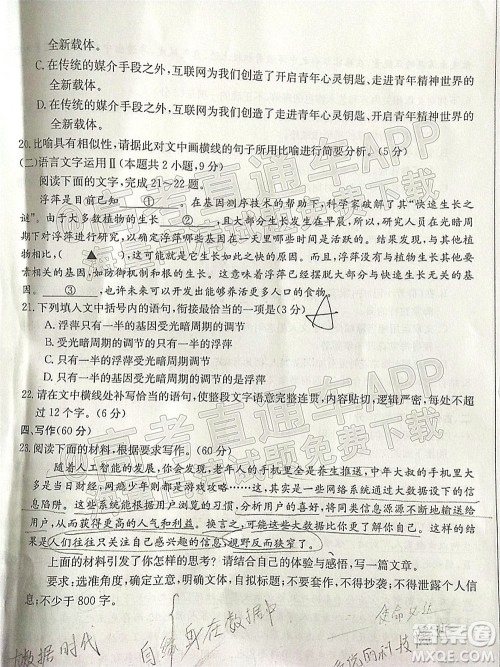 全新载体。
C.在传统的媒介手段之外,互联网为我们创造了开启青年心灵钥匙、走进青年精神世界的
全新载体。
D.在传统的媒介手段之外,互联网为我们创造了走进青年精神世界、开启青年心灵钥匙的
全新载体。
20.比喻具有相似性,请据此对文中画横线的句子所用比喻进行简要分析。(5分)
(二)语言文字运用Ⅱ(本题共2小题,9分)
阅读下面的文字,完成21~22题。
浮萍是目前已知 ① 。在基因测序技术的帮助下,科学家破解了这种“快速生长之
谜”。由于大多数植物的生长 ② ,生长大多发生在早晨。所以,研究人员在光暗周期
下观察浮萍,以确定浮萍的哪些基因在一天里的哪些时间是活跃的。结果,他们惊奇地发
现,( ▲ )。他们认为,这就是浮萍生长如此之快的原因。而且,浮萍还最大限度地利用
了与快速生长有关的基因,如防御机制和根发育的基因。浮萍舍弃了大部分与快速生长无
关的基因。 ③ ,未来可以开发出能够养活更多人口的食物。
21.下列填入文中括号内的语句,衔接最恰当的一项是(3分)
A.浮萍只有一半的基因受光暗周期的调节
B.浮萍的一半基因受光暗周期的调节
C.只有一半的浮萍受光暗周期的调节
D.只有一半的基因受光暗周期调节的是浮萍
22.请在文中横线处补写恰当的语句,使整段文字语意完整连贯,内容贴切,逻辑严密,每处不
超过12个字。(6分)
四、写作(60分)
23.阅读下面的材料,根据要求写作。(60分)
随着人工智能的发展,老年人的手机里全是养生推送,中年大叔的手机里
大多是当日财经,网瘾少年都是游戏攻略……这是一些网络系统通过大数据设下的信
息陷阱。这些系统依据用户浏览的习惯,将同类信息源源不断地输送给用
户,从而获得更多的人气和利益。换言之,可能就是大数据导致了这样的
结果:人们往往只关注自己感兴趣的信息,视野反而狭窄了。
上面的材料引发了你怎样的思考?请结合自己的体验与感悟,写一篇文章。
要求:选准角度,确定立意,明确文体,自拟标题;不要套作,不得抄袭;不得泄露个人信
息;不少于800字。
大数据时代
自缘身在数据中